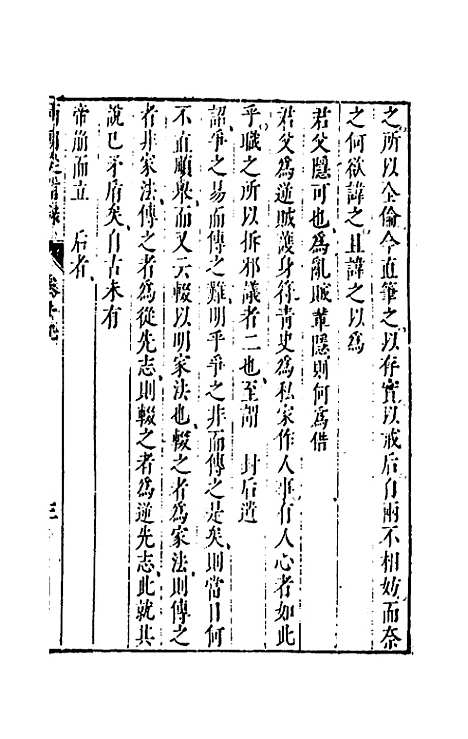 之所以全倫今直筆之以存實以戒后自兩不相妨而奈
之何欲諱之且諱之以爲
君父隱可也爲亂賊輩隱則何爲借
君父爲逆賊護身符青史爲私家作人事有人心者如此
乎職之所以拆邪議者二也至謂 封后遺
詔爭之易而傳之難明乎爭之非而傳之是矣則當日何
不直順衆而又云輟以明家法也輟之者爲家法則傳之
者非家法傳之者爲從先志則輟之者爲逆先志此就其
說已矛盾矣自古未有
帝崩而立 后者
兩朝從信錄 卷十九
三